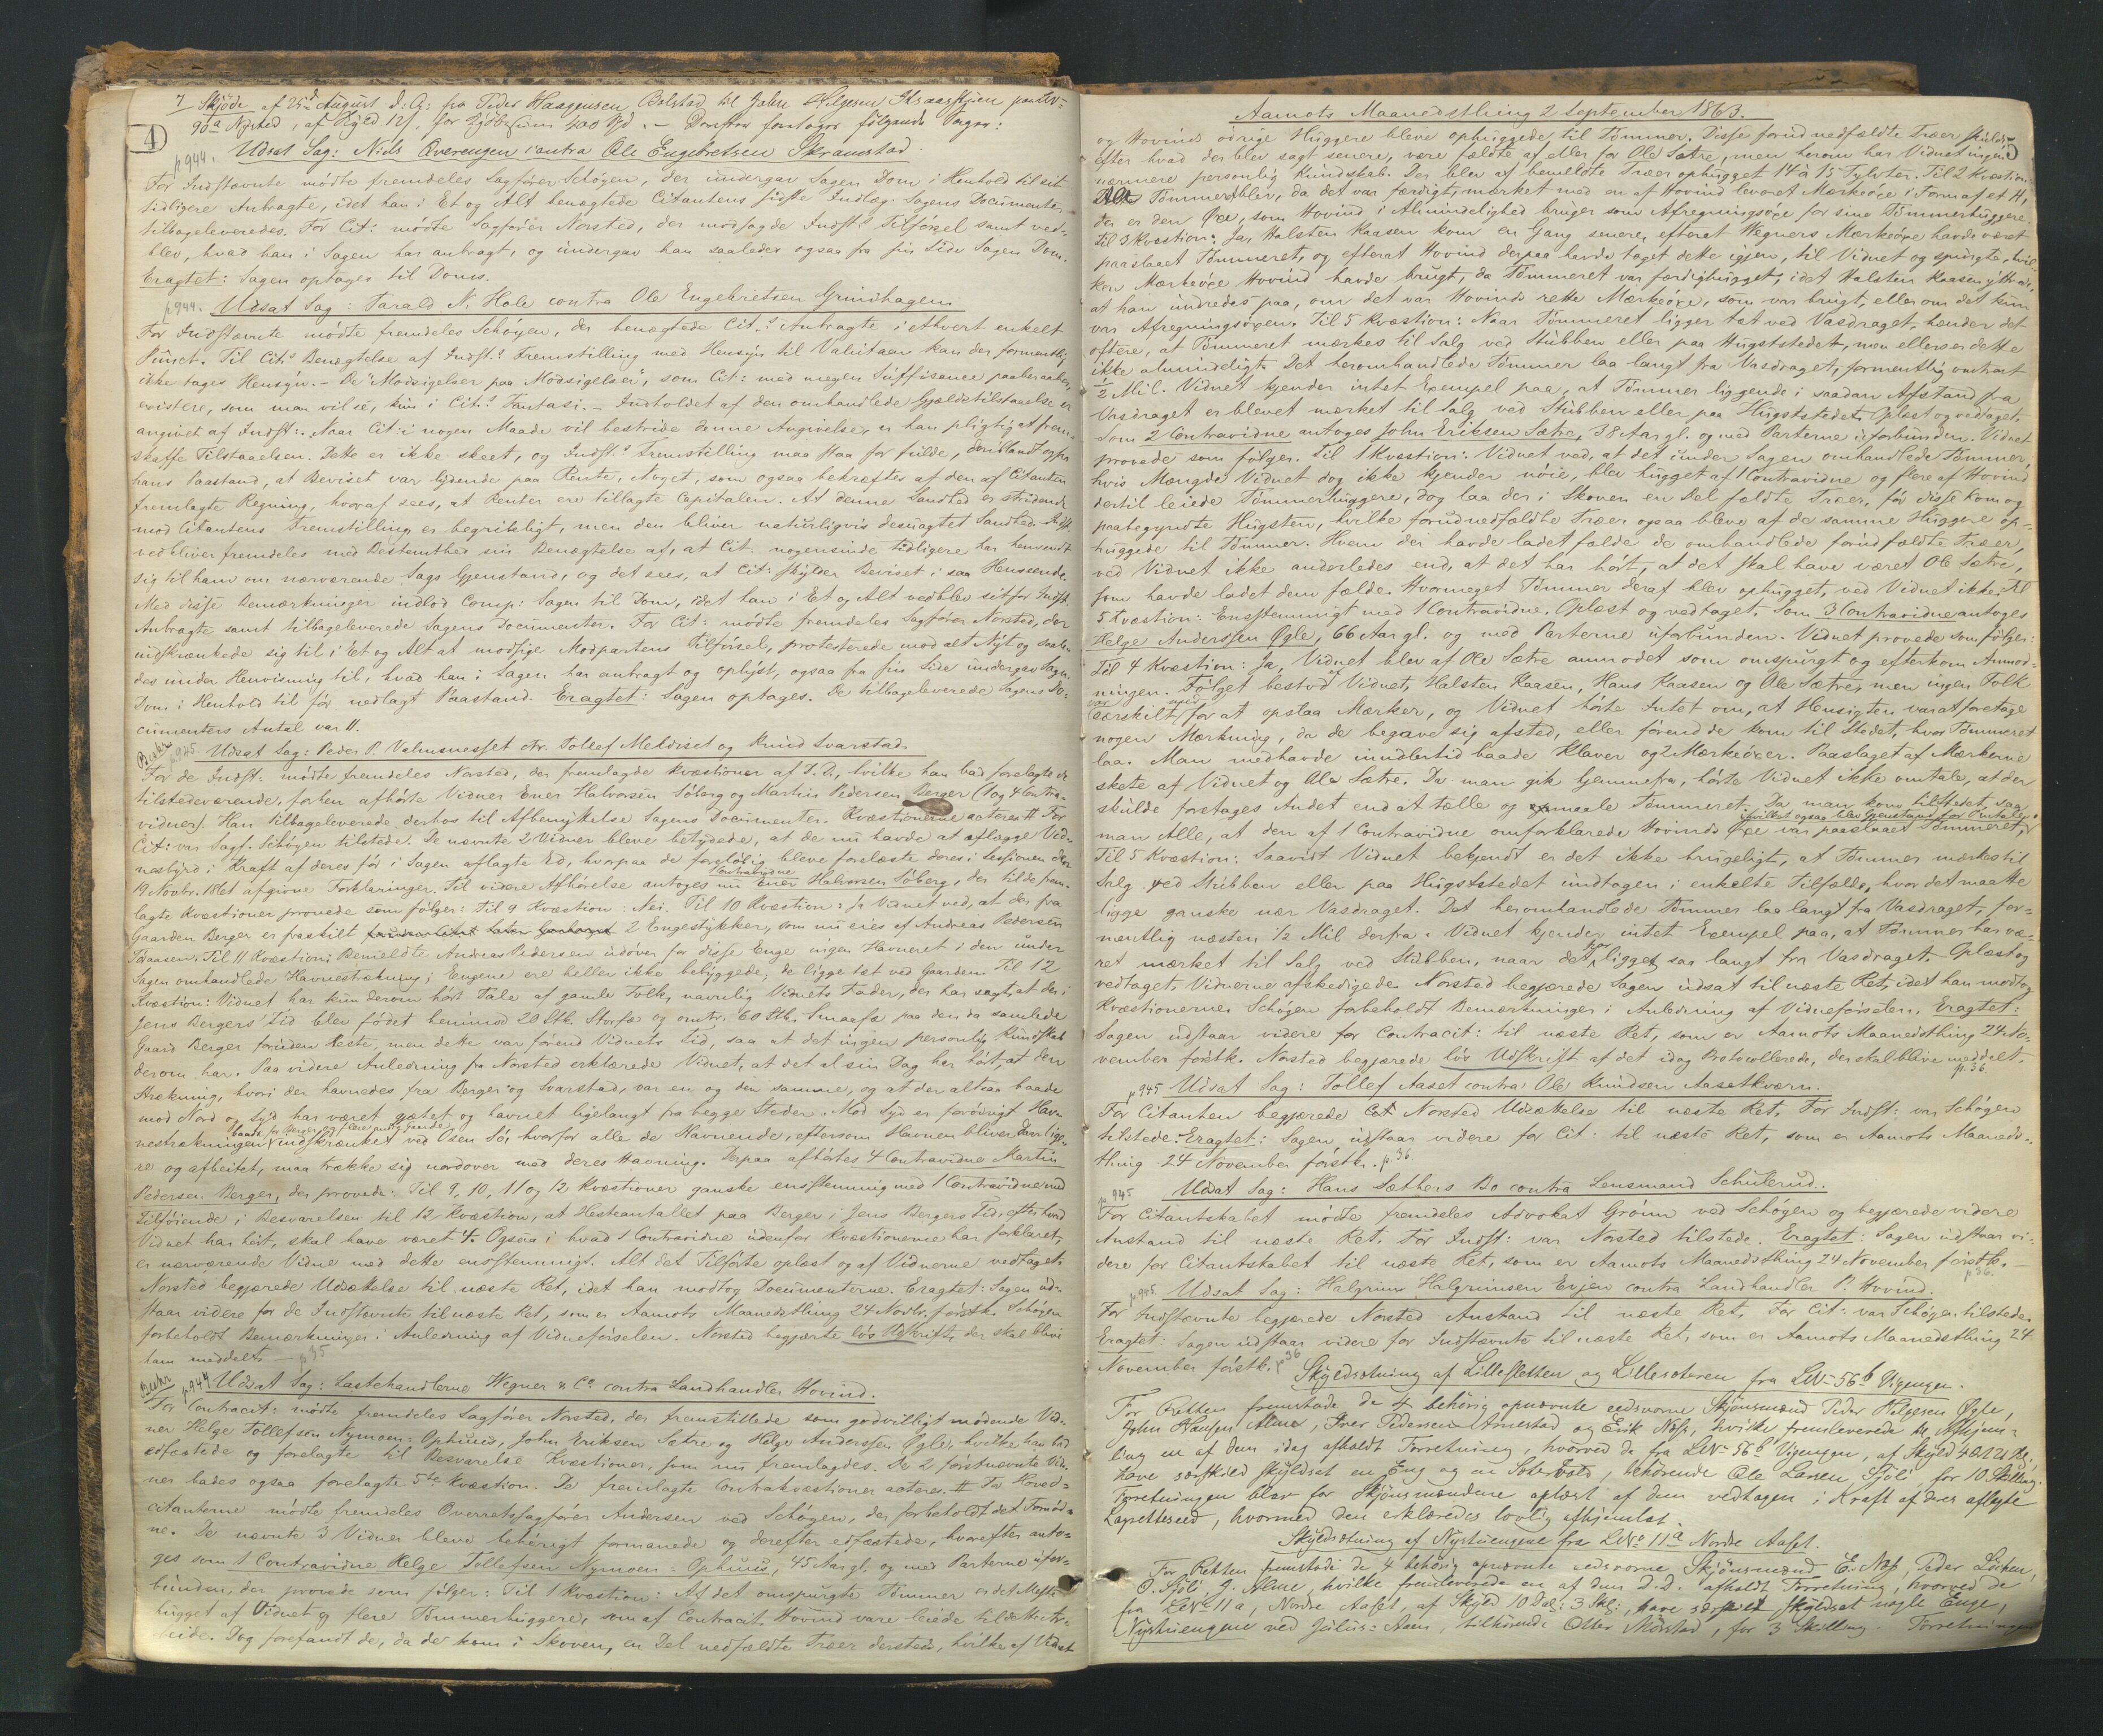 7 Skjöde af 25de August d: A: fra Peder Haagensen Bolstad til Johan Helgesen paa LNo
90a Nysted, af Skyld 12 f, for Kjöbesum 400 Spd. — Derefter foretoges følgende Sager:
4
p 944. Udsat Sag: Niels Qverengen contra Ole Engebretsen Skramstad.
For Indstævnte mödte fremdeles Sagförer Schöyen, der undergav Sagen Dom i Henhold til sit
tidligere Anbragte, idet han i Et og Alt benægtede Citantens sidste Indlæg. Sagens Documenter
tilbageleveredes. For Cit: mödte Sagförer Norsted, der modsagde Indst:s Tilförsel samt ved-
blev, hvad han i Sagen har anbragt, og undergav han saaledes ogsaa fra sin Side Sagen Dom.
Eragtet: Sagen optages til Doms.
p 944. Udsat Sag: Tarald N. Hole contra Ole Engebretsen Grindhagen.
For Indstævnte mödte fremdeles Schöyen, der benægtede Cit:s Anbragte i ethvert enkelt
Punct. Til Cit:s Benægtelse af Indst:s Fremstilling med Hensyn til Valutaen kan der formentlig
ikke tages Hensyn. — De "Modsigelser paa Modsigelser", som Cit: med megen Süffisance paaberaaber,
existere, som man vil se, kun i Cit:s Fantasi. — Indholdet af den omhandlede Gjældstilstaaelse er
angivet af Indst:. Naar Cit: i nogen Maade vil bestride denne Angivelse, er han pligtig at frem-
skaffe Tilstaaelsen. Dette er ikke skeet, og Indst:s Fremstilling maa staa for fulde, deriblandt ogsaa
hans Paastand, at Beviset var lydende paa Rente, Noget, som ogsaa bekræftes af den af Citanten
fremlagte Regning, hvoraf sees, at Renter ere tillagte Capitalen. At denne Sandhed er stridende
mod Citantens Fremstilling er begribeligt, men den bliver naturligvis desuagtet Sandhed. Indst:
vedbliver fremdeles med Bestemthed sin Benægtelse af, at Cit: nogensinde tidligere har henvendt
sig til ham om nærværende Sags Gjenstand, og det sees, at Cit: skylder Beviset i saa Henseende.
Med disse Bemærkninger indlod Comp: Sagen til Dom, idet han i Et og Alt vedblev sit for Indst:
Anbragte samt tilbageleverede Sagens Documenter. For Cit: mödte fremdeles Sagförer Norsted, der
indskrænkede sig til i Et og Alt at modsige Modpartens Tilförsel, protesterede mod alt Nyt og saale-
des under Henvisning til, hvad han i Sagen har anbragt og oplyst, ogsaa fra sin Side undergav Sagen
Dom i Henhold til før nedlagt Paastand. Eragtet: Sagen optages. De tilbageleverede Sagens Do-
cumenters Antal var 11.
Beskr p 945. Udsat Sag: Peder P. Valmsnesset ctr. Tollef Meldiset og Knud Svarstad.
For de Indst: mödte fremdeles Norsted, der fremlagde Kvæstioner af D. D., hvilke han bad forelagte de
tilstedeværende, forhen afhörte Vidner Ener Halvorsen Söberg og Martin Pedersen Berger (1 og 4 Contra-
vidner). Han tilbageleverede derhos til Afbenyttelse Sagens Documenter. Kvæstionerne acteres # For
Cit: var Sagf. Schöyen tilstede. De nævnte 2 Vidner bleve betydede, at de nu havde at aflægge Vid-
nesbyrd i Kraft af deres för i Sagen aflagte Ed, hvorpaa de foreløbig bleve forelæste deres i Sessionen den
19 Novbr. 1861 afgivne Forklaringer. Til videre Afhörelse antoges nu Contravidne Ener Halvorsen Söberg, der til de frem-
lagte Kvæstioner provede som følger: Til 9 Kvæstion: Nei. Til 10 Kvæstion: Ja Vidnet ved, at der fra
Gaarden Berger er fraskilt 2 Engestykker, som nu eies af Andreas Pedersen
Kaasen. Til 11 Kvæstion: Bemeldte Andreas Pedersen udöver for disse Enge ingen Havneret i den under
Sagen omhandlede Havnestrækning; Engene ere heller ikke bebyggede; de ligge tæt ved Gaarden. Til 12
Kvæstion: Vidnet har kun derom hört Tale af gamle Folk, navnlig Vidnets Fader, der har sagt, at der i
Jens Bergers Tid blev födet henimod 20 Stk. Storfæ og omtr. 60 Stk. Smaafæ paa den da samlede
Gaard Berger foruden Heste, men dette var forend Vidnets Tid, saa at det ingen personlig Kundskab
derom har. Paa videre Anledning fra Norsted erklærede Vidnet, at det al sin Dag har hört, at den
Strækning, hvori der havnedes fra Berger og Svarstad, var en og den samme, og at der altsaa baade
mod Nord og Syd har været gjætet og havnet ligelangt fra begge Steder. Mod Syd er forövrigt Hav-
nestrækningen baade for Berger og flere andre Gaarde indskrænket ved Osen Sö, hvorfor alle de Havnende, eftersom Havnen bliver daarlige-
re og afbeitet, maa trække sig nordover med deres Havning. Derpaa afhörtes 4 Contravidne Martin
Pedersen Berger, der provede: Til 9, 10, 11 og 12 Kvæstioner ganske enstemmig med 1 Contravidne med
Tilföiende i Besvarelsen til 12 Kvæstion, at Hesteantallet paa Berger i Jens Bergers Tid, efter hvad
Vidnet har hört, skal have været 4. Ogsaa i hvad 1 Contravidne udenfor Kvæstionerne har forklaret,
er nærværende Vidne med dette enstemmigt. Alt det Tilförte oplæst og af Vidnerne vedtaget.
Norsted begjærede Udsættelse til næste Ret, idet han modtog Documenterne. Eragtet: Sagen ud-
staar videre for de Indstævnte til næste Ret, som er Aamots Maanedsthing 24 Novbr. förstk. Schöyen
forbeholdt Bemærkninger i Anledning af Vidneförselen. Norsted begjærte lös Udskrift, der skal blive
ham meddelt. — p 35
Beskr p 944 Udsat Sag: Lastehandlerne Wegner & Co contra Landhandler Hovind.
For Contracit: mödte fremdeles Sagförer Norsted, der fremstillede som godvilligt mödende Vid-
ner Helge Tollefsen Nymoen-Ophuus, John Eriksen Sætre og Helge Anderssen Øgle, hvilke han bad
edfæstede og forelagte til Besvarelse Kvæstioner, som nu fremlagdes. De 2 forstnævnte Vid-
ner bades ogsaa forelagte 5te Kvæstion. De fremlagte Contrakvæstioner acteres. # For Hoved-
citanterne mödte fremdeles Overretssagförer Andersen ved Schöyen, der forbeholdt det Fornød-
ne. De nævnte 3 Vidner bleve behörigt formanede og derefter edfæstede, hvorefter anto-
ges som 1 Contravidne Helge Tollefsen Nymoen-Ophuus, 45 Aar gl. og med Parterne ufor-
bunden, der provede som følger: Til 1 Kvæstion: At det omspurgte Tömmer er det Meste
hugget af Vidnet og flere Tömmerhuggere, som af Contracit. Hovind vare leiede til det Ar-
beide. Dog forefandt de, da de kom i Skoven, en Del nedfældte Træer dersteds, hvilke af Vidnet
Aamots Maanedsthing 2 September 1863.
5
og Hovinds övrige Huggere bleve ophuggede til Tömmer. Disse forud nedfældte Træer skulde,
efter hvad der blev sagt senere, være fældte af eller for Ole Sætre, men herom har Vidnet ingen
nærmere personlig Kundskab. Der blev af bemeldte Træer ophugget 14 à 15 Tylvter. Til 2 Kvæstion:
Alt Tömmeret blev, da det var færdigt, mærket med en af Hovind leveret Mærkeöxe i Form af et H,
der er den Öxe, som Hovind i Almindelighed bruger som Afregningsöxe for sine Tömmerhuggere.
Til 3 Kvæstion: Ja, Halsten Kaasen kom en Gang senere, efterat Wegners Mærkeöxe havde været
paaslaaet Tömmeret, og efterat Hovind derpaa havde taget dette igjen, til Vidnet og spurgte, hvil-
ken Mærkeöxe Hovind havde brugt, da Tömmeret var færdighugget, idet Halsten Kaasen yttrede,
at han undredes paa, om det var Hovinds rette Mærkeöxe, som var brugt, eller om det kun
var Afregningsöxen. Til 5 Kvæstion: Naar Tömmeret ligger tæt ved Vasdraget, hænder det
oftere, at Tömmeret mærkes til Salg ved Stubben eller paa Hugststedet, men ellers er dette
ikke almindeligt. Det heromhandlede Tömmer laa langt fra Vasdraget, formentlig omtrent
1/2 Mil. Vidnet kjender intet Exempel paa, at Tömmer liggende i saadan Afstand fra
Vasdraget er blevet mærket til Salg ved Stubben eller paa Hugststedet. Oplæst og vedtaget.
Som 2 Contravidne antoges John Eriksen Sætre, 38 Aar gl. og med Parterne uforbunden. Vidnet
provede som følger. Til 1 Kvæstion: Vidnet ved, at det under Sagen omhandlede Tömmer,
hvis Mængde Vidnet dog ikke kjender nöie, blev hugget af 1 Contravidne og flere af Hovind
dertil leiede Tömmerhuggere, dog laa der i Skoven en Del fældte Træer, för disse kom og
paabegyndte Hugsten, hvilke forudnedfældte Træer ogsaa bleve af de samme Huggere op-
huggede til Tömmer. Hvem der havde ladet fælde de omhandlede forudfældte Træer,
ved Vidnet ikke anderledes end, at det har hört, at det skal have været Ole Sætre,
som havde ladet dem fælde. Hvormeget Tömmer deraf blev ophugget, ved Vidnet ikke. Til
5 Kvæstion: Enstemmigt med 1 Contravidne. Oplæst og vedtaget. Som 3 Contravidne antoges
Helge Anderssen Øgle, 66 Aar gl. og med Parterne uforbunden. Vidnet provede som følger:
Til 4 Kvæstion: Ja, Vidnet blev af Ole Sætre anmodet som omspurgt og efterkom Anmod-
ningen. Fölget bestod af Vidnet, Halsten Kaasen, Hans Kaasen og Ole Sætre, men ingen Folk
var særskilt med for at opslaa Mærker, og Vidnet hörte Intet om, at Hensigten var at foretage
nogen Mærkning, da de begave sig afsted, eller förend de kom til Stedet, hvor Tömmeret
laa. Man medhavde imidlertid baade Klaver og 2 Mærkeöxer. Paaslaget af Mærkerne
skete af Vidnet og Ole Sætre. Da man gik hjemmefra, hörte Vidnet ikke omtale, at der
skulde foretages Andet end at tælle og maale Tömmeret. Da man kom til Stedet, saa
man Alle, at den af 1 Contravidne omforklarede Hovinds Öxe var paaslaaet Tömmeret, hvilket ogsaa blev Gjenstand for Omtale.
Til 5 Kvæstion: Saavidt Vidnet bekjendt er det ikke brugeligt, at Tömmer mærkes til
Salg ved Stubben eller paa Hugststedet undtagen i enkelte Tilfælde, hvor det maatte
ligge ganske nær Vasdraget. Det heromhandlede Tömmer laa langt fra Vasdraget, for-
mentlig næsten 1/2 Mil derfra. Vidnet kjender intet Exempel paa, at Tömmer har væ-
ret mærket til Salg ved Stubben, naar det har ligget saa langt fra Vasdraget. Oplæst og
vedtaget. Vidnerne afskedigede. Norsted begjærede Sagen udsat til næste Ret, idet han modtog
Kvæstionerne. Schöyen forbeholdt Bemærkninger i Anledning af Vidneförselen. Eragtet:
Sagen udstaar videre for Contracit: til næste Ret, som er Aamots Maanedsthing 24 No-
vember förstk. Norsted begjærede lös Udskrift af det idag Protocollerede, der skal blive meddelt.
p. 36
p 945 Udsat Sag: Tollef Aaset contra Ole Knudsen Aasetkværn.
For Citanten begjærede Norsted Udsættelse til næste Ret. For Indst: var Schöyen
tilstede. Eragtet: Sagen udstaar videre for Cit: til næste Ret, som er Aamots Maaneds-
thing 24 November förstk. p. 36.
p 945 Udsat Sag: Hans Sæthers Bo contra Lensmand Schulerud.
For Citantskabet mödte fremdeles Advokat Grönn ved Schöyen og begjærede videre
Anstand til næste Ret. For Indst: var Norsted tilstede. Eragtet: Sagen udstaar vi-
dere for Citantskabet til næste Ret, som er Aamots Maanedsthing 24 November förstk. —
p 36.
p 945. Udsat Sag: Halgrim Halgrimsen Evjen contra Landhandler P. Hovind.
For Indstævnte begjærede Norsted Anstand til næste Ret. For Cit: var Schöyen tilstede.
Eragtet: Sagen udstaar videre for Indstævnte til næste Ret, som er Aamots Maanedsthing 24
November förstk. p 36
Skyldsætning af Lillesletten og Lillesæteren fra LNo 56b Vigengen.
For Retten fremstode de 4 behörig opnævnte eedsvorne Skjönsmænd Peder Helgesen Øgle,
John Hansen Alme, Iver Pedersen Arnestad og Erik Næss, hvilke fremleverede til Afhjem-
ling en af dem idag afholdt Forretning, hvorved de fra LNo 56b Vigengen, af Skyld
have særskild skyldsat en Eng og en Sætertved, tilhörende Ole Larsen Sjöli for 10 Skilling.
Forretningen blev for Skjönsmændene oplæst, af dem vedtagen i Kraft af deres aflagte
Laugretteseed, hvormed den erklæredes lovlig afhjemlet.
Skyldsætning af Nystuengene fra LNo 11a Nordre Aaset.
For Retten fremstode de 4 behörig opnævnte eedsvorne Skjönsmænd E. Næss, Peder Löiten,
O. Sjöli, J. Alme, hvilke fremleverede en af dem D. D. afholdt Forretning, hvorved de
fra LNo 11a, Nordre Aaset, af Skyld 10 Dal: 3 Skl:, have særskilt skyldsat nogle Enge,
Nystuengene ved Julus-Aaen, tilhörende Otter Mörstad, for 3 Skilling. Forretningen